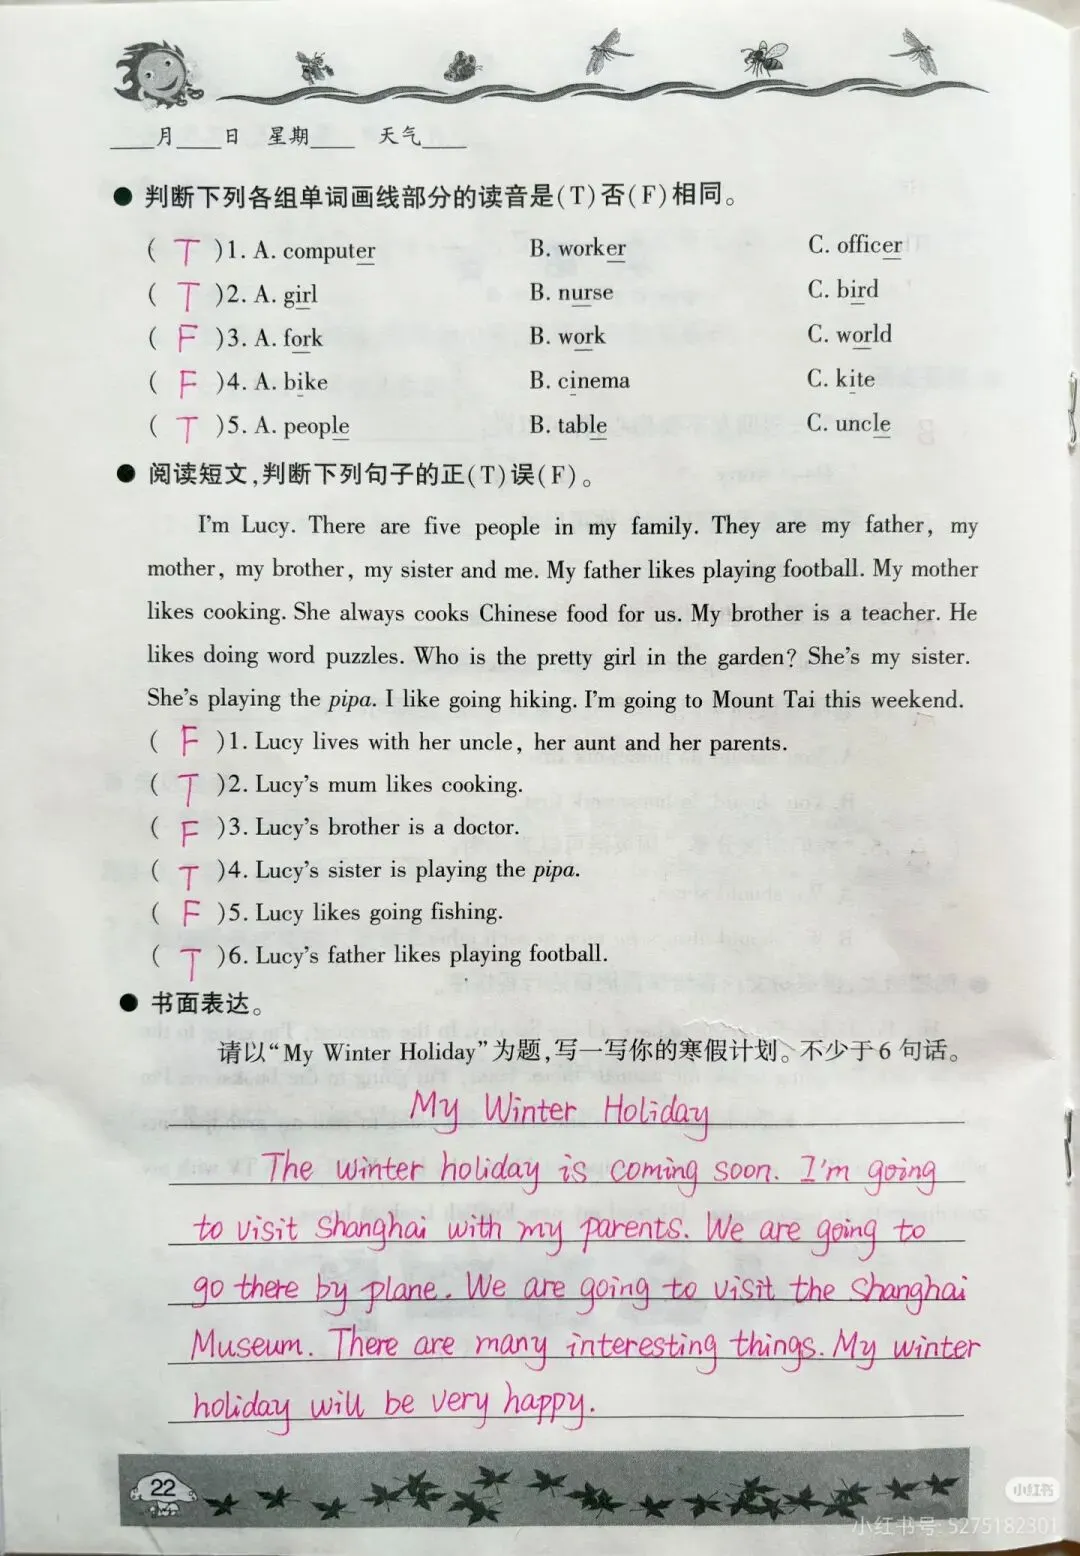 ____月____日 星期____ 天气____
● 判断下列各组单词画线部分的读音是(T)否(F)相同。
( T )1. A. computer B. worker C. officer
( T )2. A. girl B. nurse C. bird
( F )3. A. fork B. work C. world
( F )4. A. bike B. cinema C. kite
( T )5. A. people B. table C. uncle
● 阅读短文,判断下列句子的正(T)误(F)。
I'm Lucy. There are five people in my family. They are my father, my
mother, my brother, my sister and me. My father likes playing football. My mother
likes cooking. She always cooks Chinese food for us. My brother is a teacher. He
likes doing word puzzles. Who is the pretty girl in the garden? She's my sister.
She's playing the pipa. I like going hiking. I'm going to Mount Tai this weekend.
( F )1. Lucy lives with her uncle, her aunt and her parents.
( T )2. Lucy's mum likes cooking.
( F )3. Lucy's brother is a doctor.
( T )4. Lucy's sister is playing the pipa.
( F )5. Lucy likes going fishing.
( T )6. Lucy's father likes playing football.
● 书面表达。
请以“My Winter Holiday”为题,写一写你的寒假计划。不少于6句话。
My Winter Holiday
The winter holiday is coming soon. I'm going
to visit Shanghai with my parents. We are going to
go there by plane. We are going to visit the Shanghai
Museum. There are many interesting things. My winter
holiday will be very happy.
22
小红书
小红书号: 5275182301